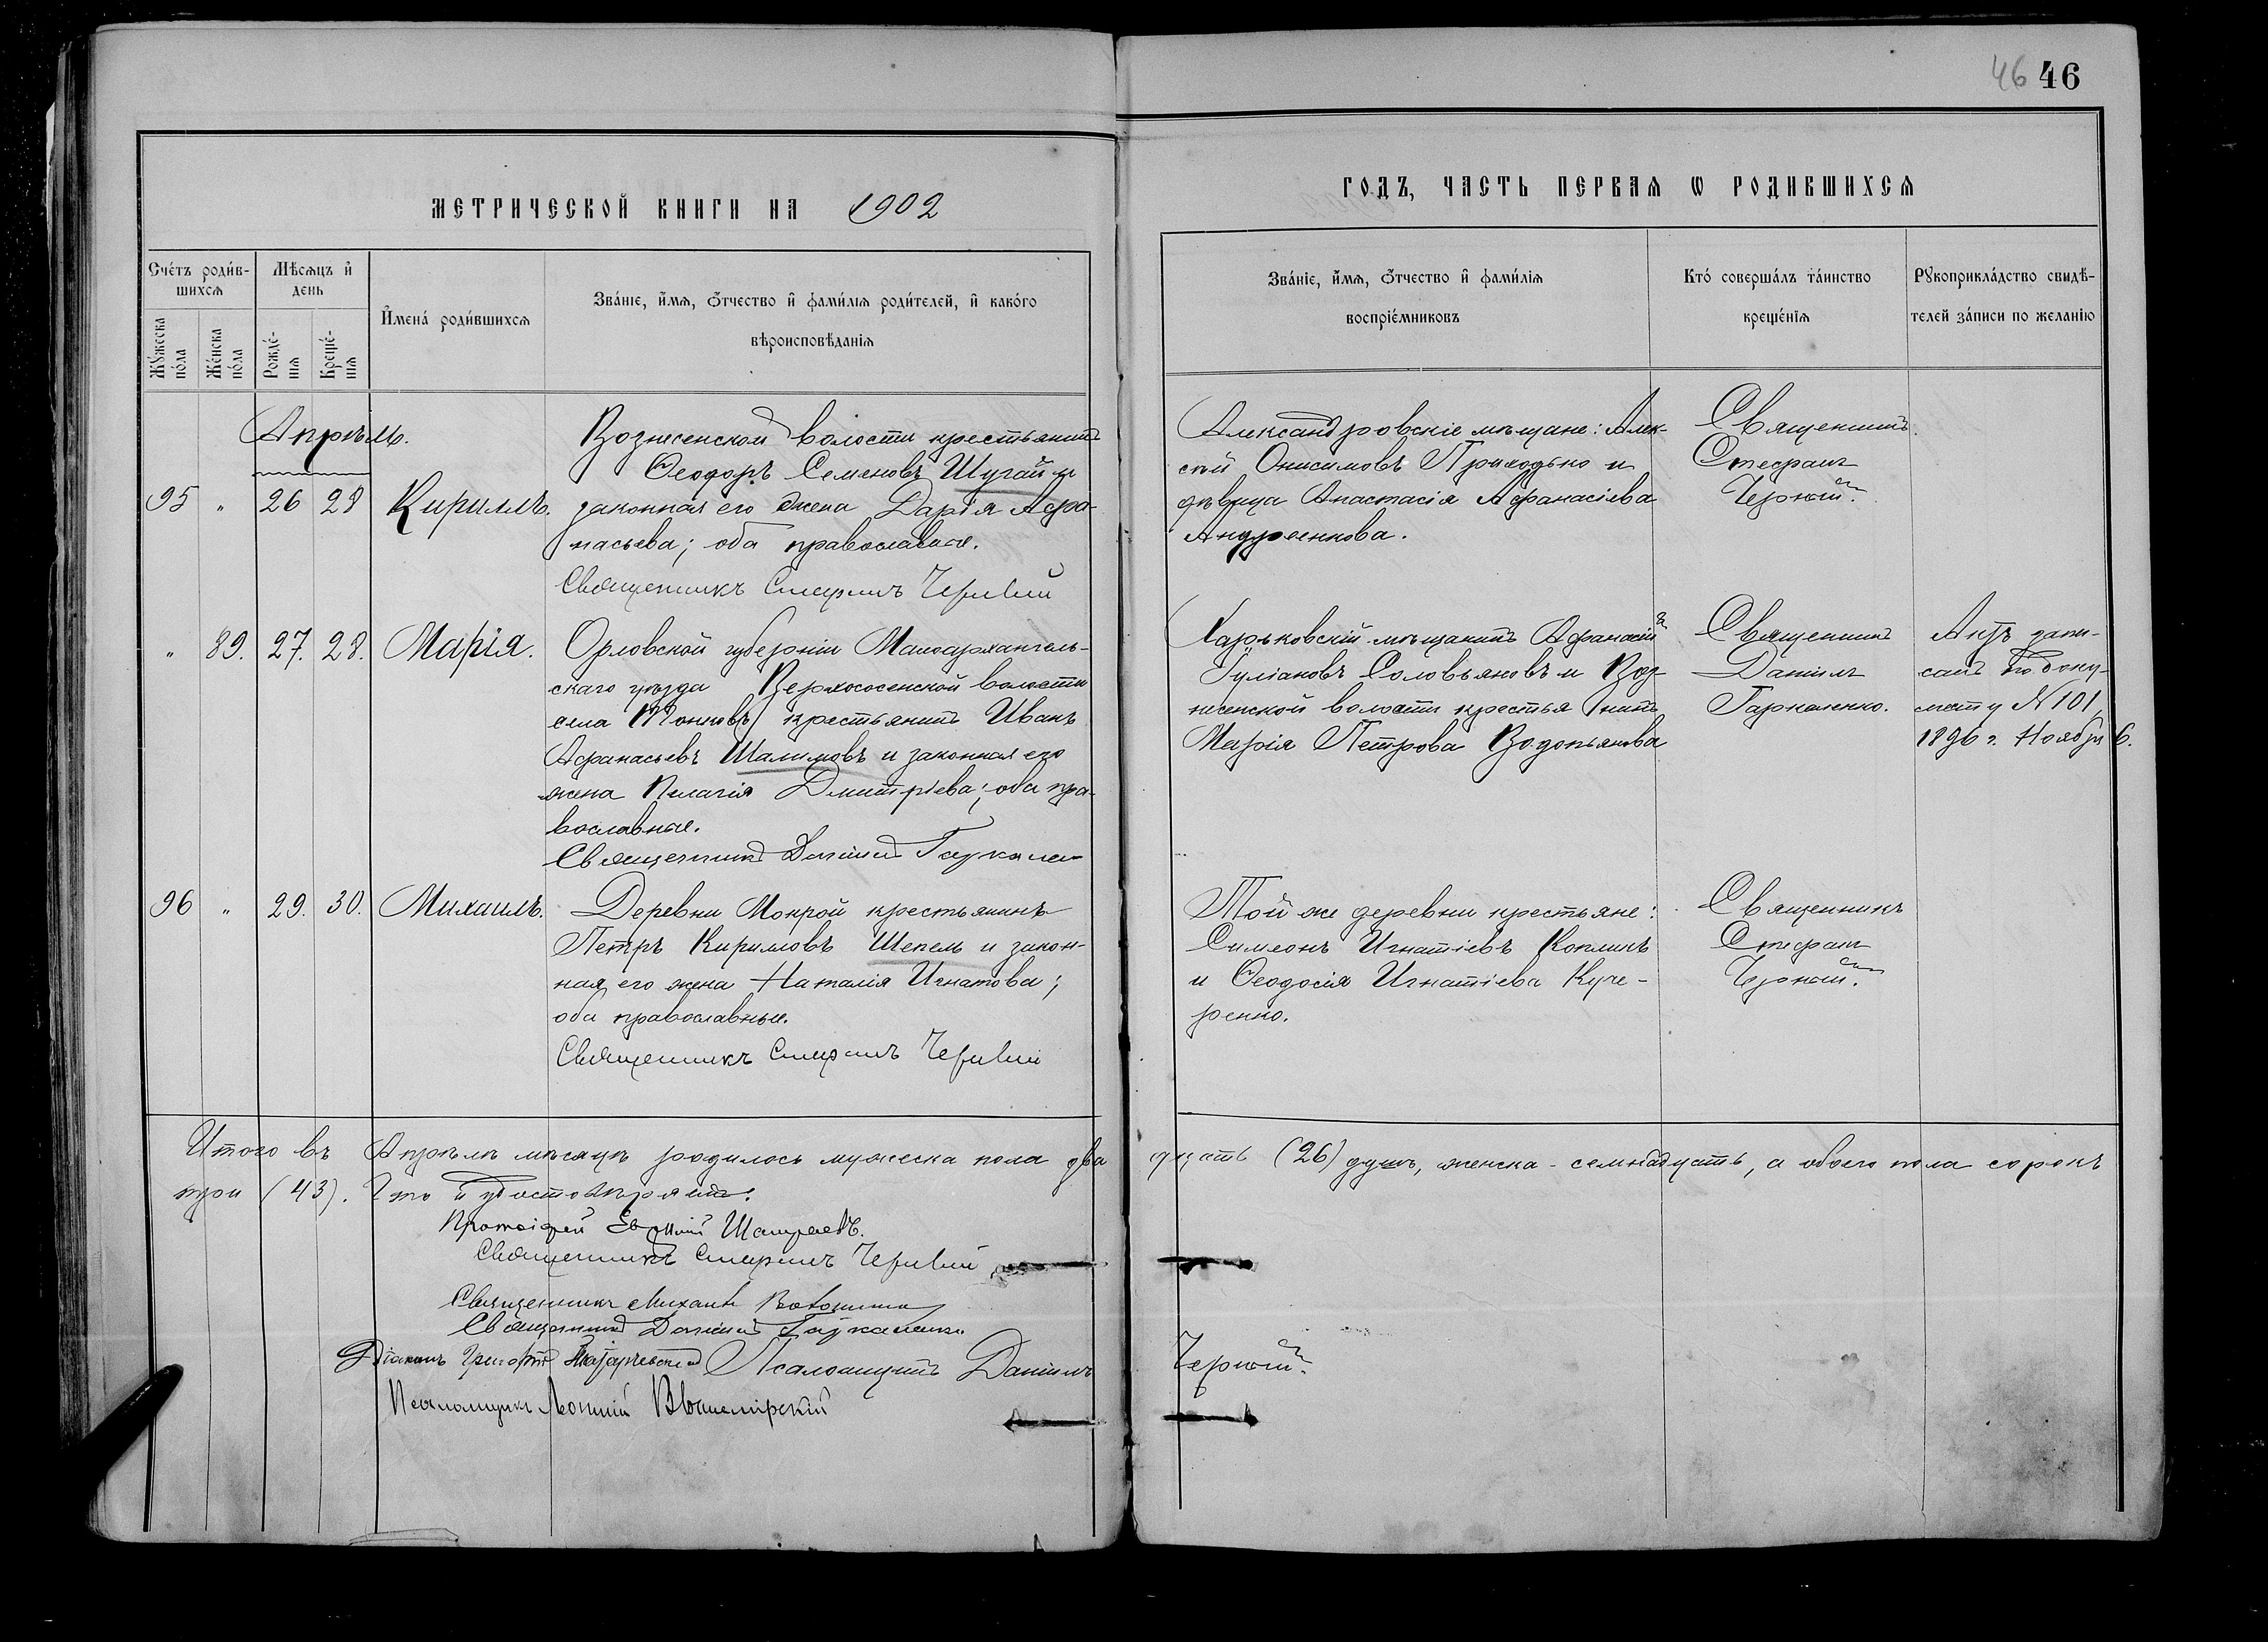 46 46
МЕТРИЧЕСКОЙ КНИГИ НА 1902
ГОДЪ, ЧАСТЬ ПЕРВАЯ Ѡ РОДИВШИХСЯ
Счетъ родив-
шихся
Мѣсяцъ и
день
Мужеска
пола
Женска
пола
Рожде-
нія
Креще-
нія
Имена родившихся
Званіе, имя, отчество и фамилія родителей, и какого
вѣроисповѣданія
Званіе, имя, отчество и фамилія
воспріемниковъ
Кто совершалъ таинство
крещенія
Рукоприкладство свидѣ-
телей записи по желанію
Апрѣль.
95 " 26 28 Кириллъ.
Вознесенской волости крестьянинъ
Ѳеодоръ Семеновъ Шугай и
законная его жена Дарія Афа-
насьева; оба православные.
Священникъ Стефанъ Черный
Александровскіе мѣщане: Алек-
сѣй Онисимовъ Приходько и
дѣвица Анастасія Афанасіева
Андреенкова.
Священникъ
Стефанъ
Черный.
" 89. 27. 28. Марія.
Орловской губерніи Малоархангель-
скаго уѣзда Верхососенской волости
села крестьянинъ Иванъ
Афанасьевъ Шалимовъ и законная его
жена Пелагія Дмитріева; оба пра-
вославные.
Священникъ Даніилъ
Харьковскій мѣщанинъ Афанасій
Іуліановъ Соловьяновъ и Воз-
несенской волости крестьянка
Марія Петрова Водопьянова
Священникъ
Даніилъ
Гаркаленко.
Актъ запи-
санъ по доку-
менту № 101,
1896 г. Ноября 6.
96 " 29. 30. Михаилъ.
Деревни Мокрой крестьянинъ
Петръ Кирилловъ Шепель и закон-
ная его жена Наталія Игнатова;
оба православные.
Священникъ Стефанъ Черный
Той же деревни крестьяне:
Симеонъ Игнатіевъ Коплинъ
и Ѳеодосія Игнатіева Куче-
ренко.
Священникъ
Стефанъ
Черный.
Итого въ Апрѣлѣ мѣсяцѣ родилось мужеска пола два дцать (26) душъ, женска - семнадцать, а обоего пола сорокъ
три (43). Что и удостовѣряемъ.
Протоіерей
Священникъ Стефанъ Черный
Священникъ Михаилъ
Священникъ Даніилъ Гаркаленко
Діаконъ Григорій Псаломщикъ Даніилъ Черный.
Псаломщикъ